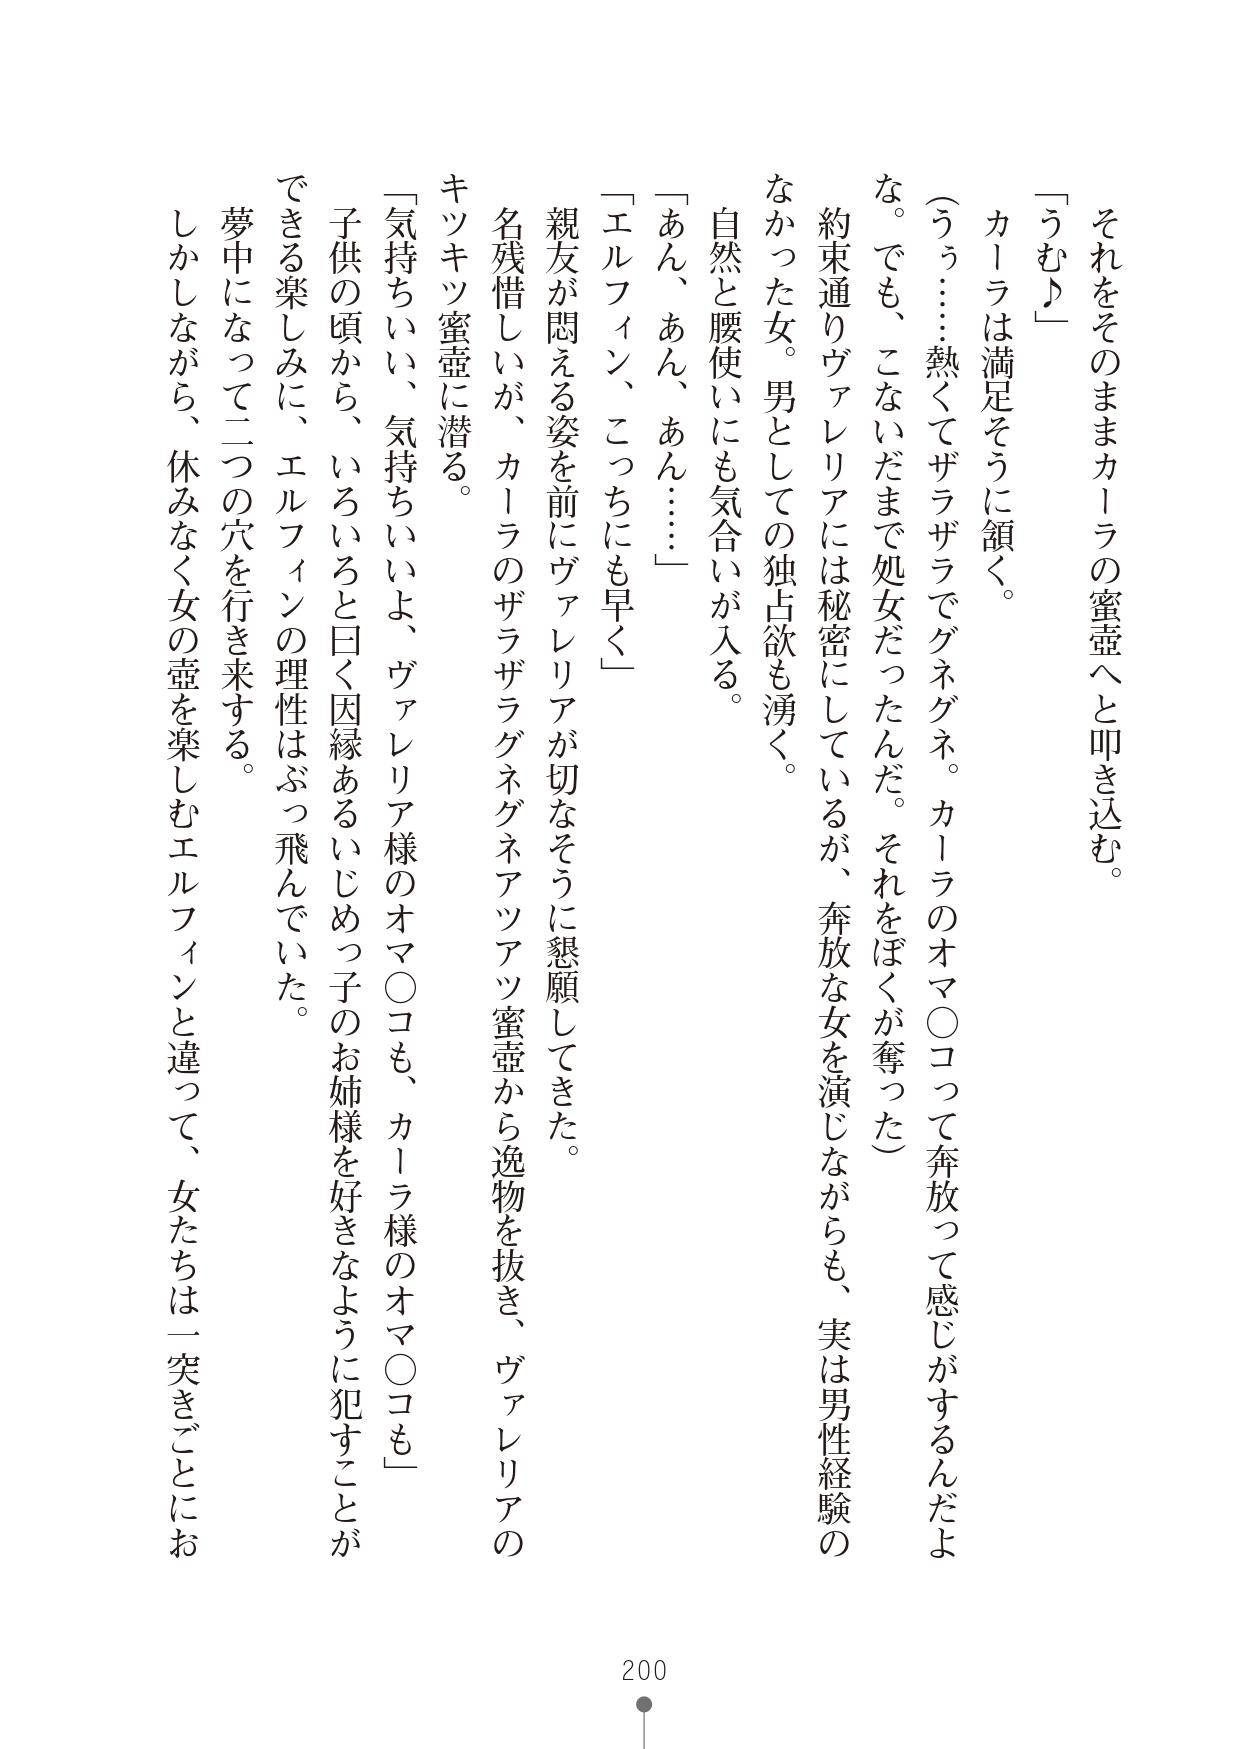 それをそのままカーラの蜜壺へと叩き込む。
「うむ♪」
カーラは満足そうに頷く。
（うぅ……熱くてザラザラでグネグネ。カーラのオマ〇コって奔放って感じがするんだよ
な。でも、こないだまで処女だったんだ。それをぼくが奪った）
約束通りヴァレリアには秘密にしているが、奔放な女を演じながらも、実は男性経験の
なかった女。男としての独占欲も湧く。
自然と腰使いにも気合いが入る。
「あん、あん、あん……」
「エルフィン、こっちにも早く」
親友が悶える姿を前にヴァレリアが切なそうに懇願してきた。
名残惜しいが、カーラのザラザラグネグネアツアツ蜜壺から逸物を抜き、ヴァレリアの
キツキツ蜜壺に潜る。
「気持ちいい、気持ちいいよ、ヴァレリア様のオマ〇コも、カーラ様のオマ〇コも」
子供の頃から、いろいろと曰く因縁あるいじめっ子のお姉様を好きなように犯すことが
できる楽しみに、エルフィンの理性はぶっ飛んでいた。
夢中になって二つの穴を行き来する。
しかしながら、休みなく女の壺を楽しむエルフィンと違って、女たちは一突きごとにお
200